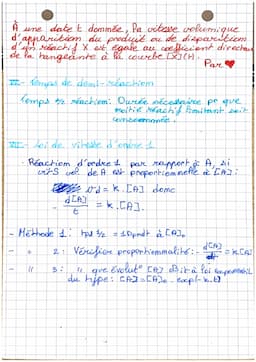 À une date t donnée, la vitesse volumique
d'apparition du produit ou de disparition
d'un réactif X est égale au coefficient directeur
de la tangeante à la courbe [X](t).
Par ♥
VI - Temps de demi-réaction
Temps 1/2 réaction: Durée nécessaire pr que
moitié réactif limitant soit
consommée.
VII - Loi de vitesse d'ordre 1
· Réaction d'ordre 1 par rapport à A, si
vol de A est proportionnelle à [A]:
vd = k.[A] donc
- d[A]/t = k.[A].
- Méthode 1: tps 1/2 = indpndt à [A]₀
- " 2: Vérifier proportionnalité: - d[A]/dt = k[A]
- " 3: " que évolut° [A] obéit à loi exponentiel
du type: [A]=[A]₀.exp(-k.t)